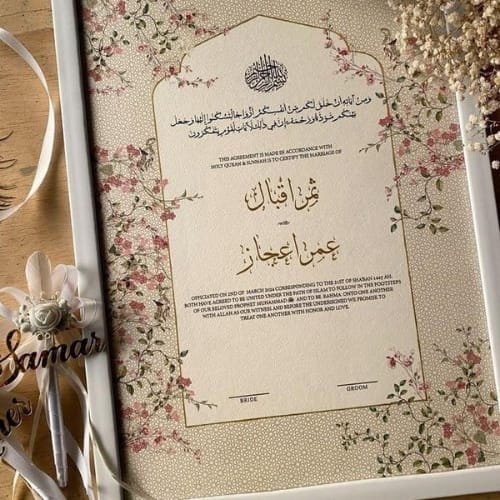 بسم الله الرحمن الرحيم
ومن آياته أن خلق لكم من أنفسكم أزواجا لتسكنوا إليها وجعل
بينكم مودة ورحمة إن في ذلك لآيات لقوم يتفكرون
THIS AGREEMENT IS MADE IN ACCORDANCE WITH
HOLY QURAN & SUNNAH IS TO CERTIFY THE MARRIAGE OF
ثمر اقبال
عمر اعجاز
OFFICIATED ON 2ND OF MARCH 2024 CORRESPONDING TO THE 21ST OF SHABAN 1445 AH.
BOTH HAVE AGREED TO BE UNITED UNDER THE PATH OF ISLAM TO FOLLOW IN THE FOOTSTEPS
OF OUR BELOVED PROPHET MUHAMMAD ﷺ AND TO BE RAHMA, ONTO ONE ANOTHER
WITH ALLAH AS OUR WITNESS AND BEFORE THE UNDERSIGNED WE PROMISE TO
TREAT ONE ANOTHER WITH HONOR AND LOVE.
BRIDE
GROOM
Samar